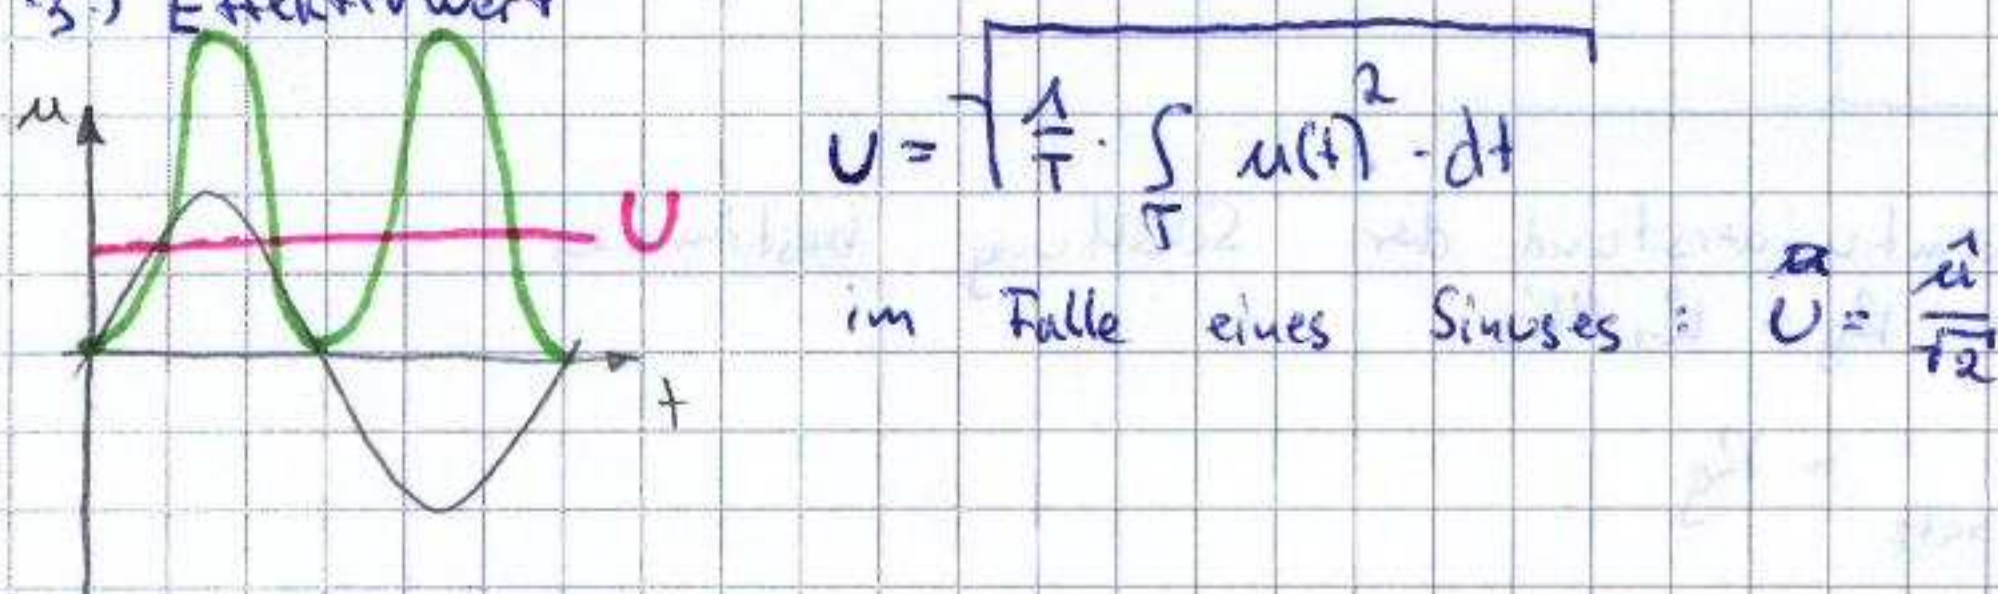 3.) Effektivwert
u
U
t
U = √(1/T · ∫_T u(t)² · dt)
im Falle eines Sinuses : U = û/√2